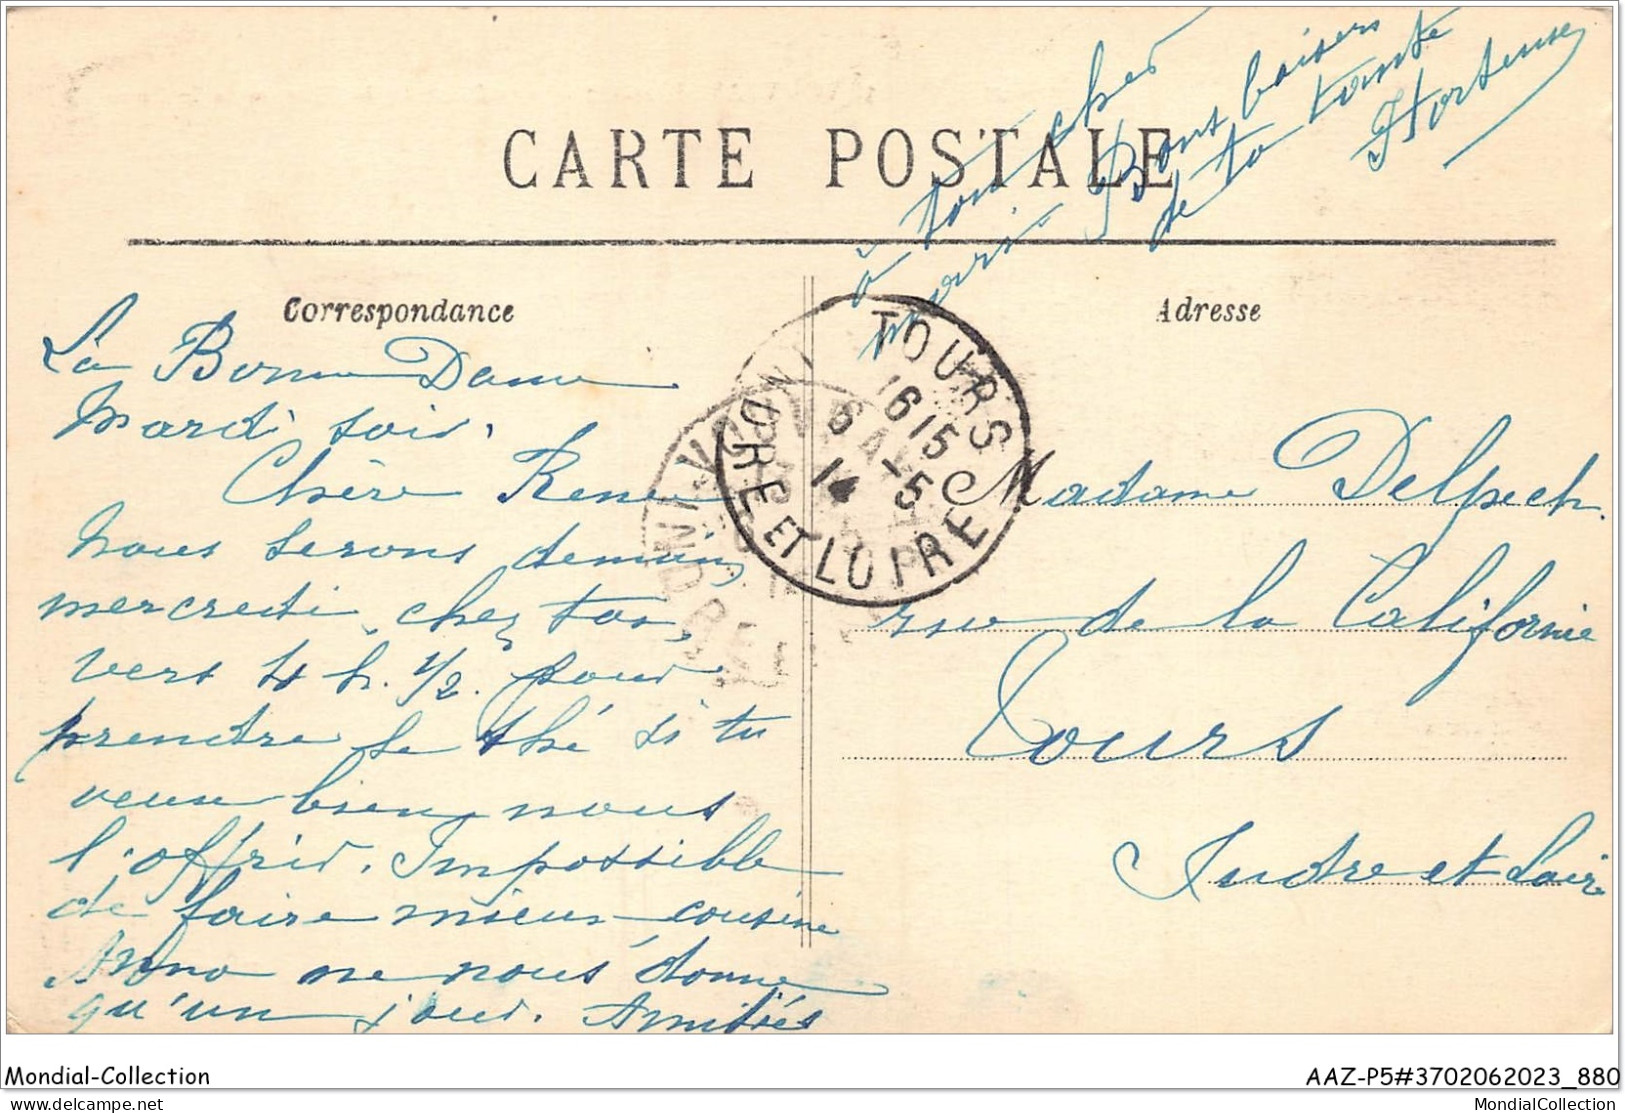 à ton cher
mari. Bons baisers
de ta tante
Hortense
CARTE POSTALE
Correspondance
Adresse
La Bonne Dame
Mardi soir.
Chère Renée
Nous serons demain,
mercredi, chez toi,
vers 4 h. 1/2. pour
prendre le thé si tu
veux bien nous
l'offrir. Impossible
de faire mieux cousine
Anna ne nous donne
qu'un jour. Amitiés
TOURS
16 15
6 -5
14
INDRE ET LOIRE
Madame Delpech
rue de la Californie
Tours
Indre et Loire
Mondial-Collection
AAZ-P5#3702062023_880
mondial-collection.delcampe.net
MondialCollection